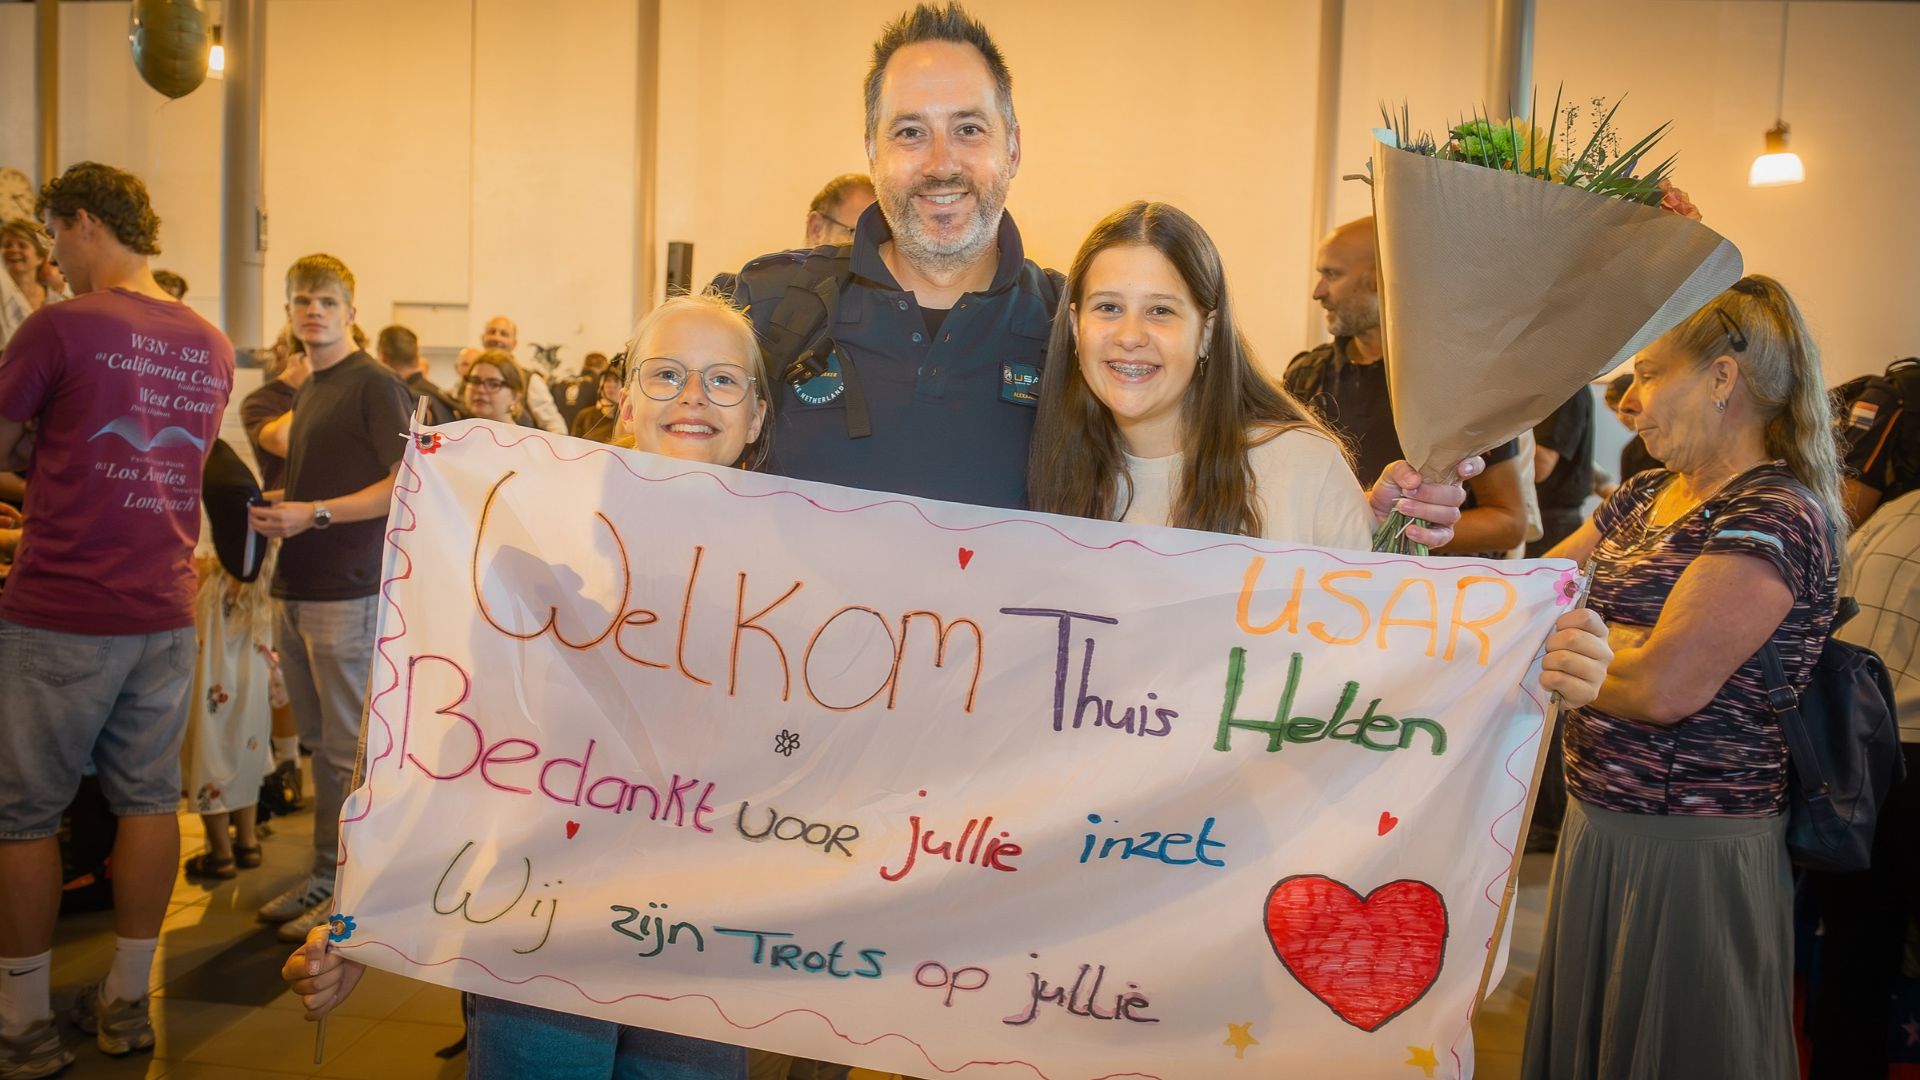 W3N - S2E
California Coast
West Coast
Los Angeles
THE NETHERLANDS
USAR
Welkom Thuis Helden
USAR
Bedankt voor jullie inzet
Wij zijn Trots op jullie